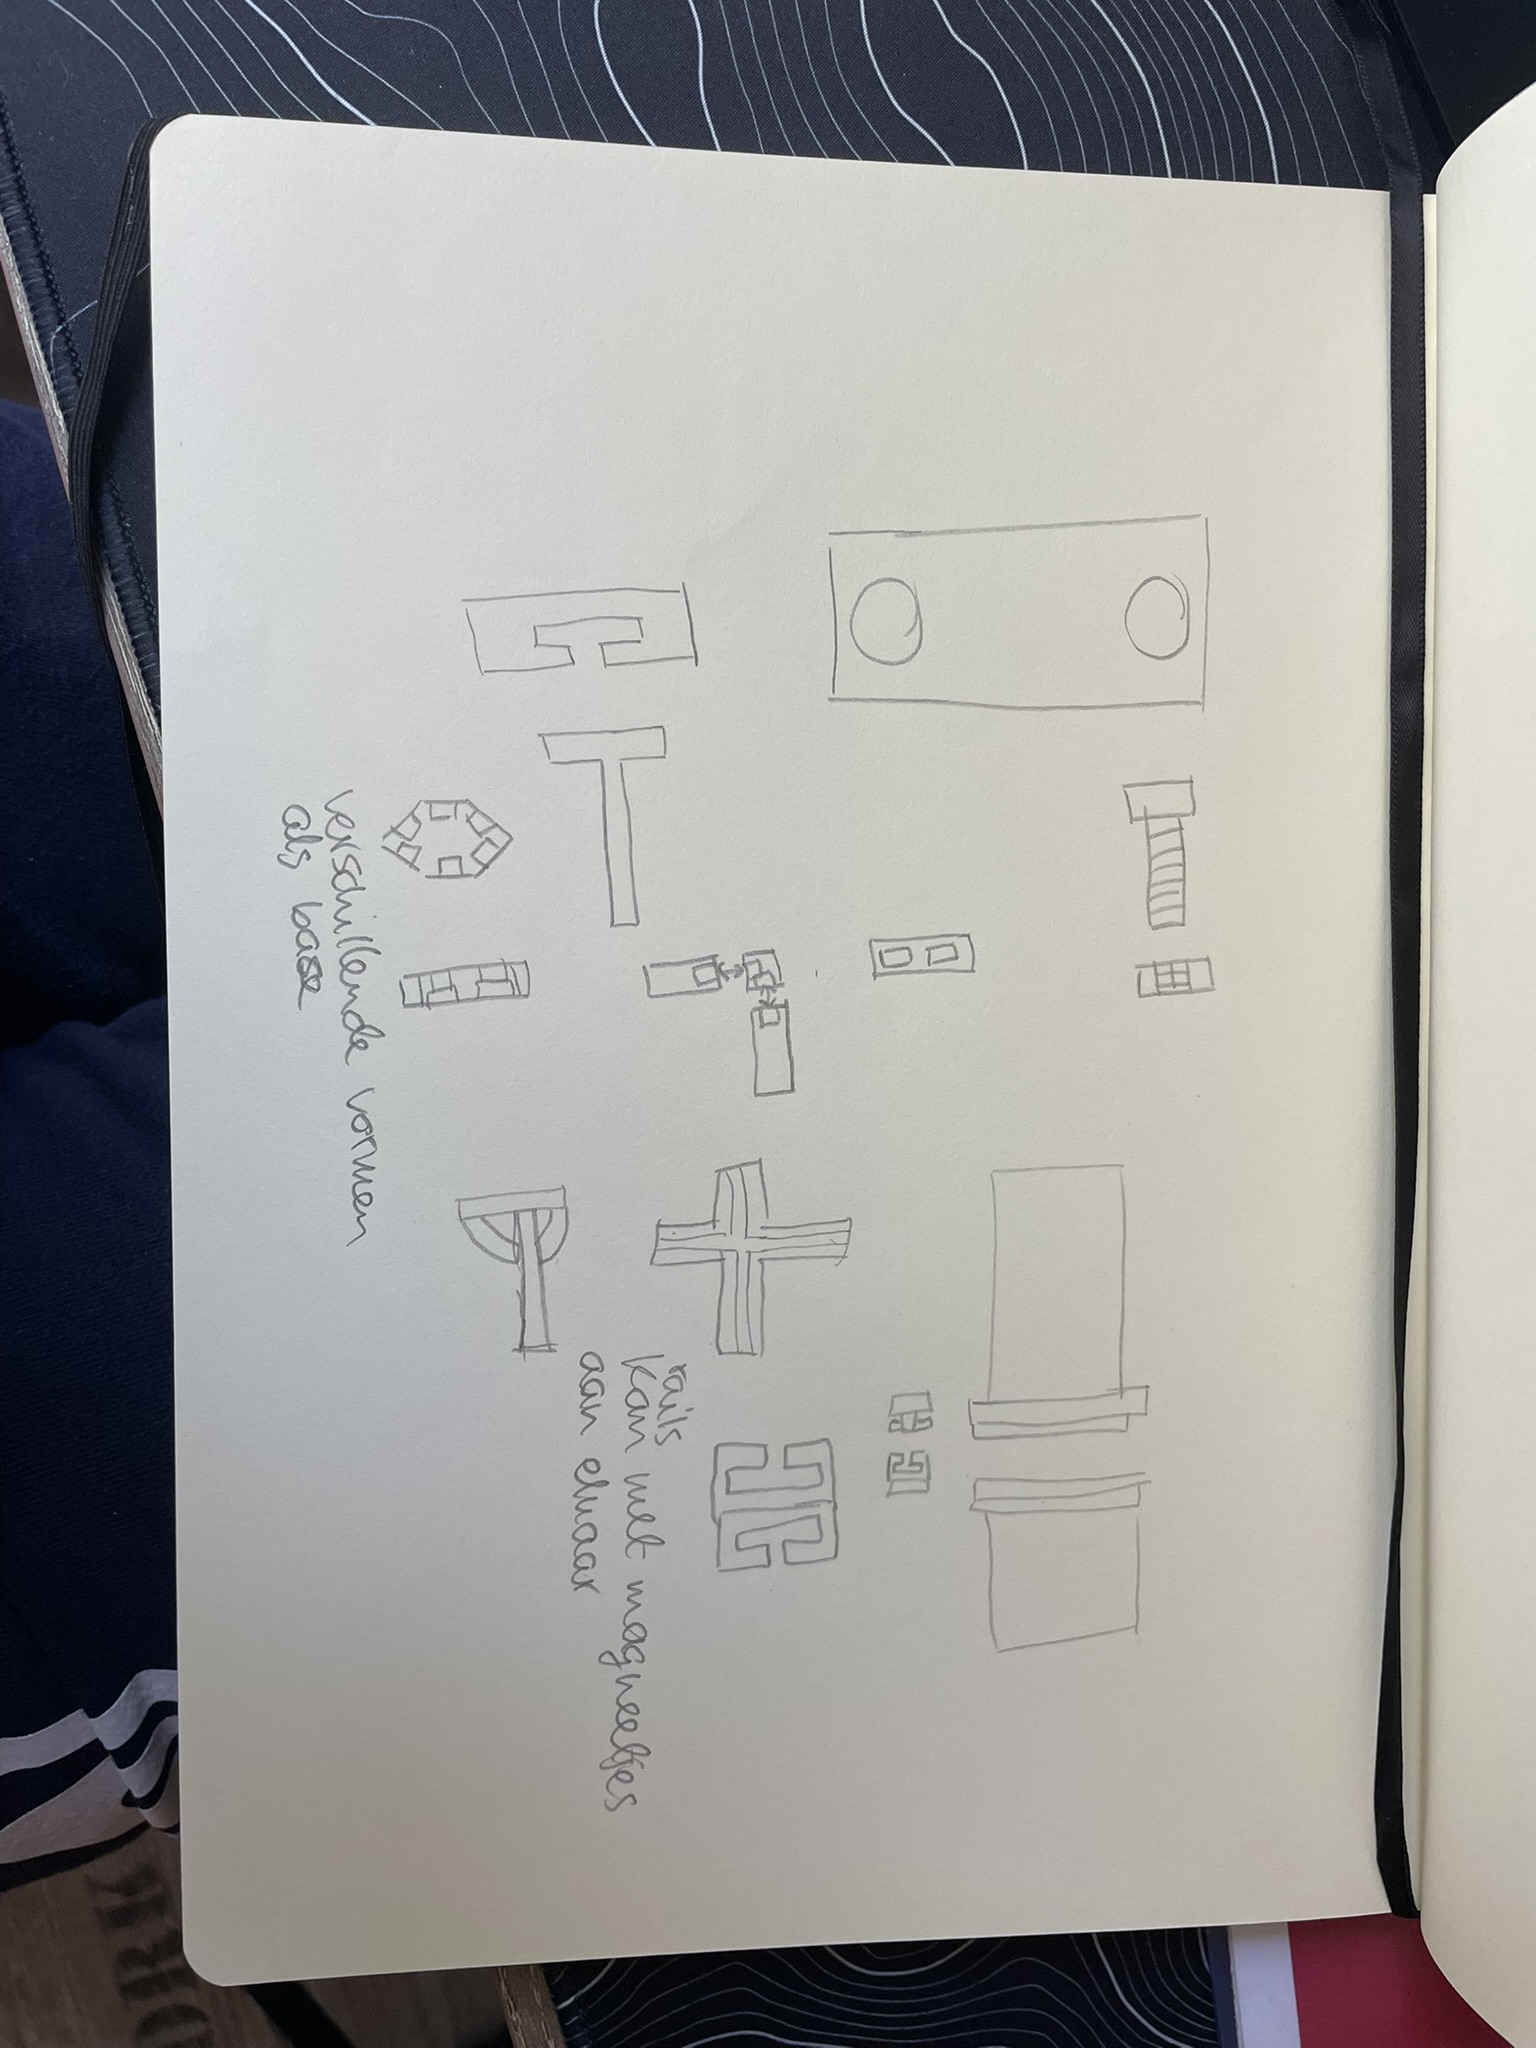 rails
kan met magneetjes
aan elkaar
verschillende vormen
als base